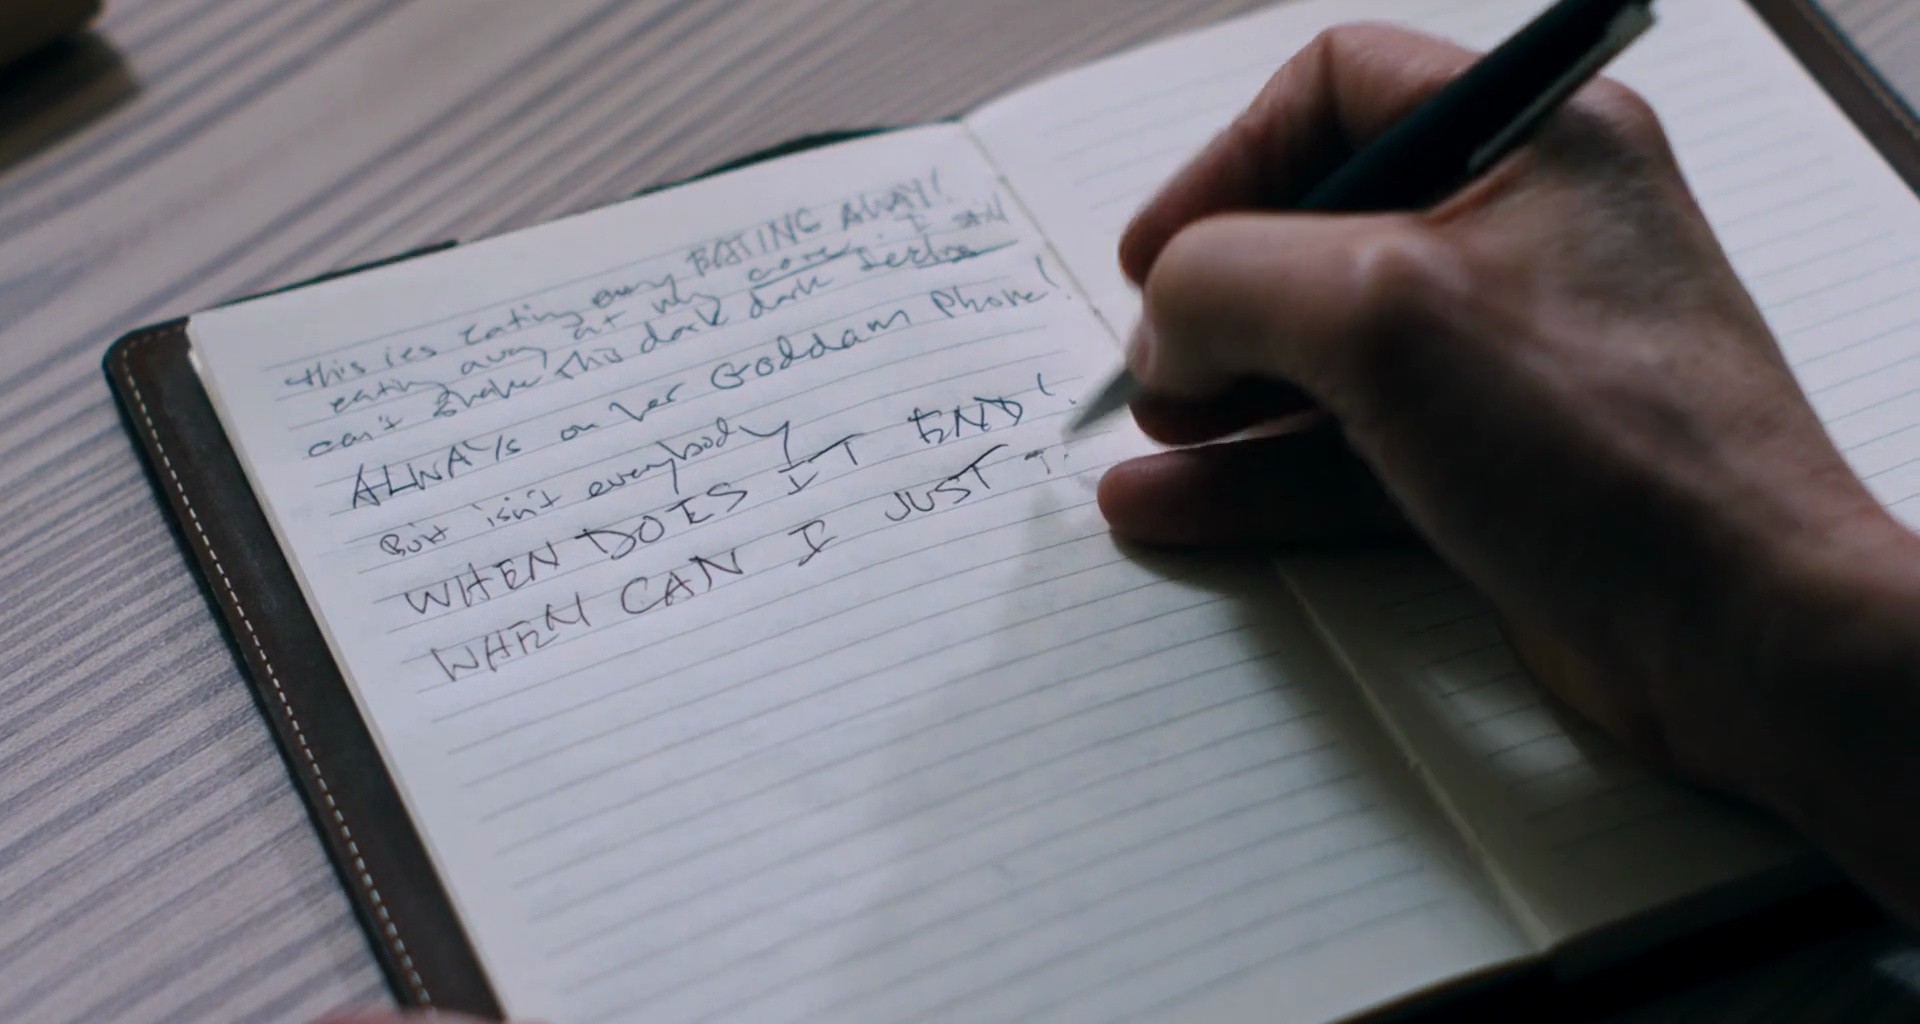 this is eating away EATING AWAY!
eating away at my core. I still
can't shake this dark dark
ALWAYS on her Goddam Phone!
But isn't everybody
WHEN DOES IT END!
WHEN CAN I JUST T